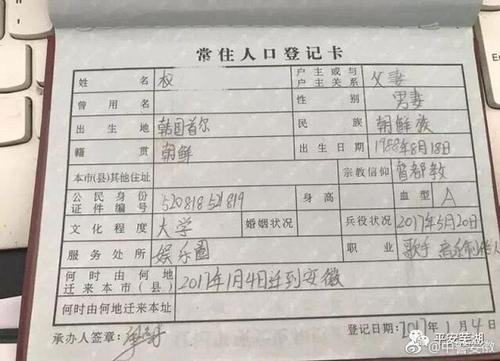 常住人口登记卡
姓名 权 户主或与户主关系 父妻
曾用名 性别 男妻
出生地 韩国首尔 民族 朝鲜族
籍贯 朝鲜 出生日期 1988年8月18日
本市(县)其他住址 宗教信仰
公民身份证件编号 520818521819 身高 血型 A
文化程度 大学 婚姻状况 兵役状况 2017年5月20日
服务处所 娱乐圈 职业 歌手 音乐制作人
何时由何地迁来本市(县) 2017年1月4日迁到安徽
何时由何地迁来本址
承办人签章: 登记日期: 2017年1月4日
平安芜湖